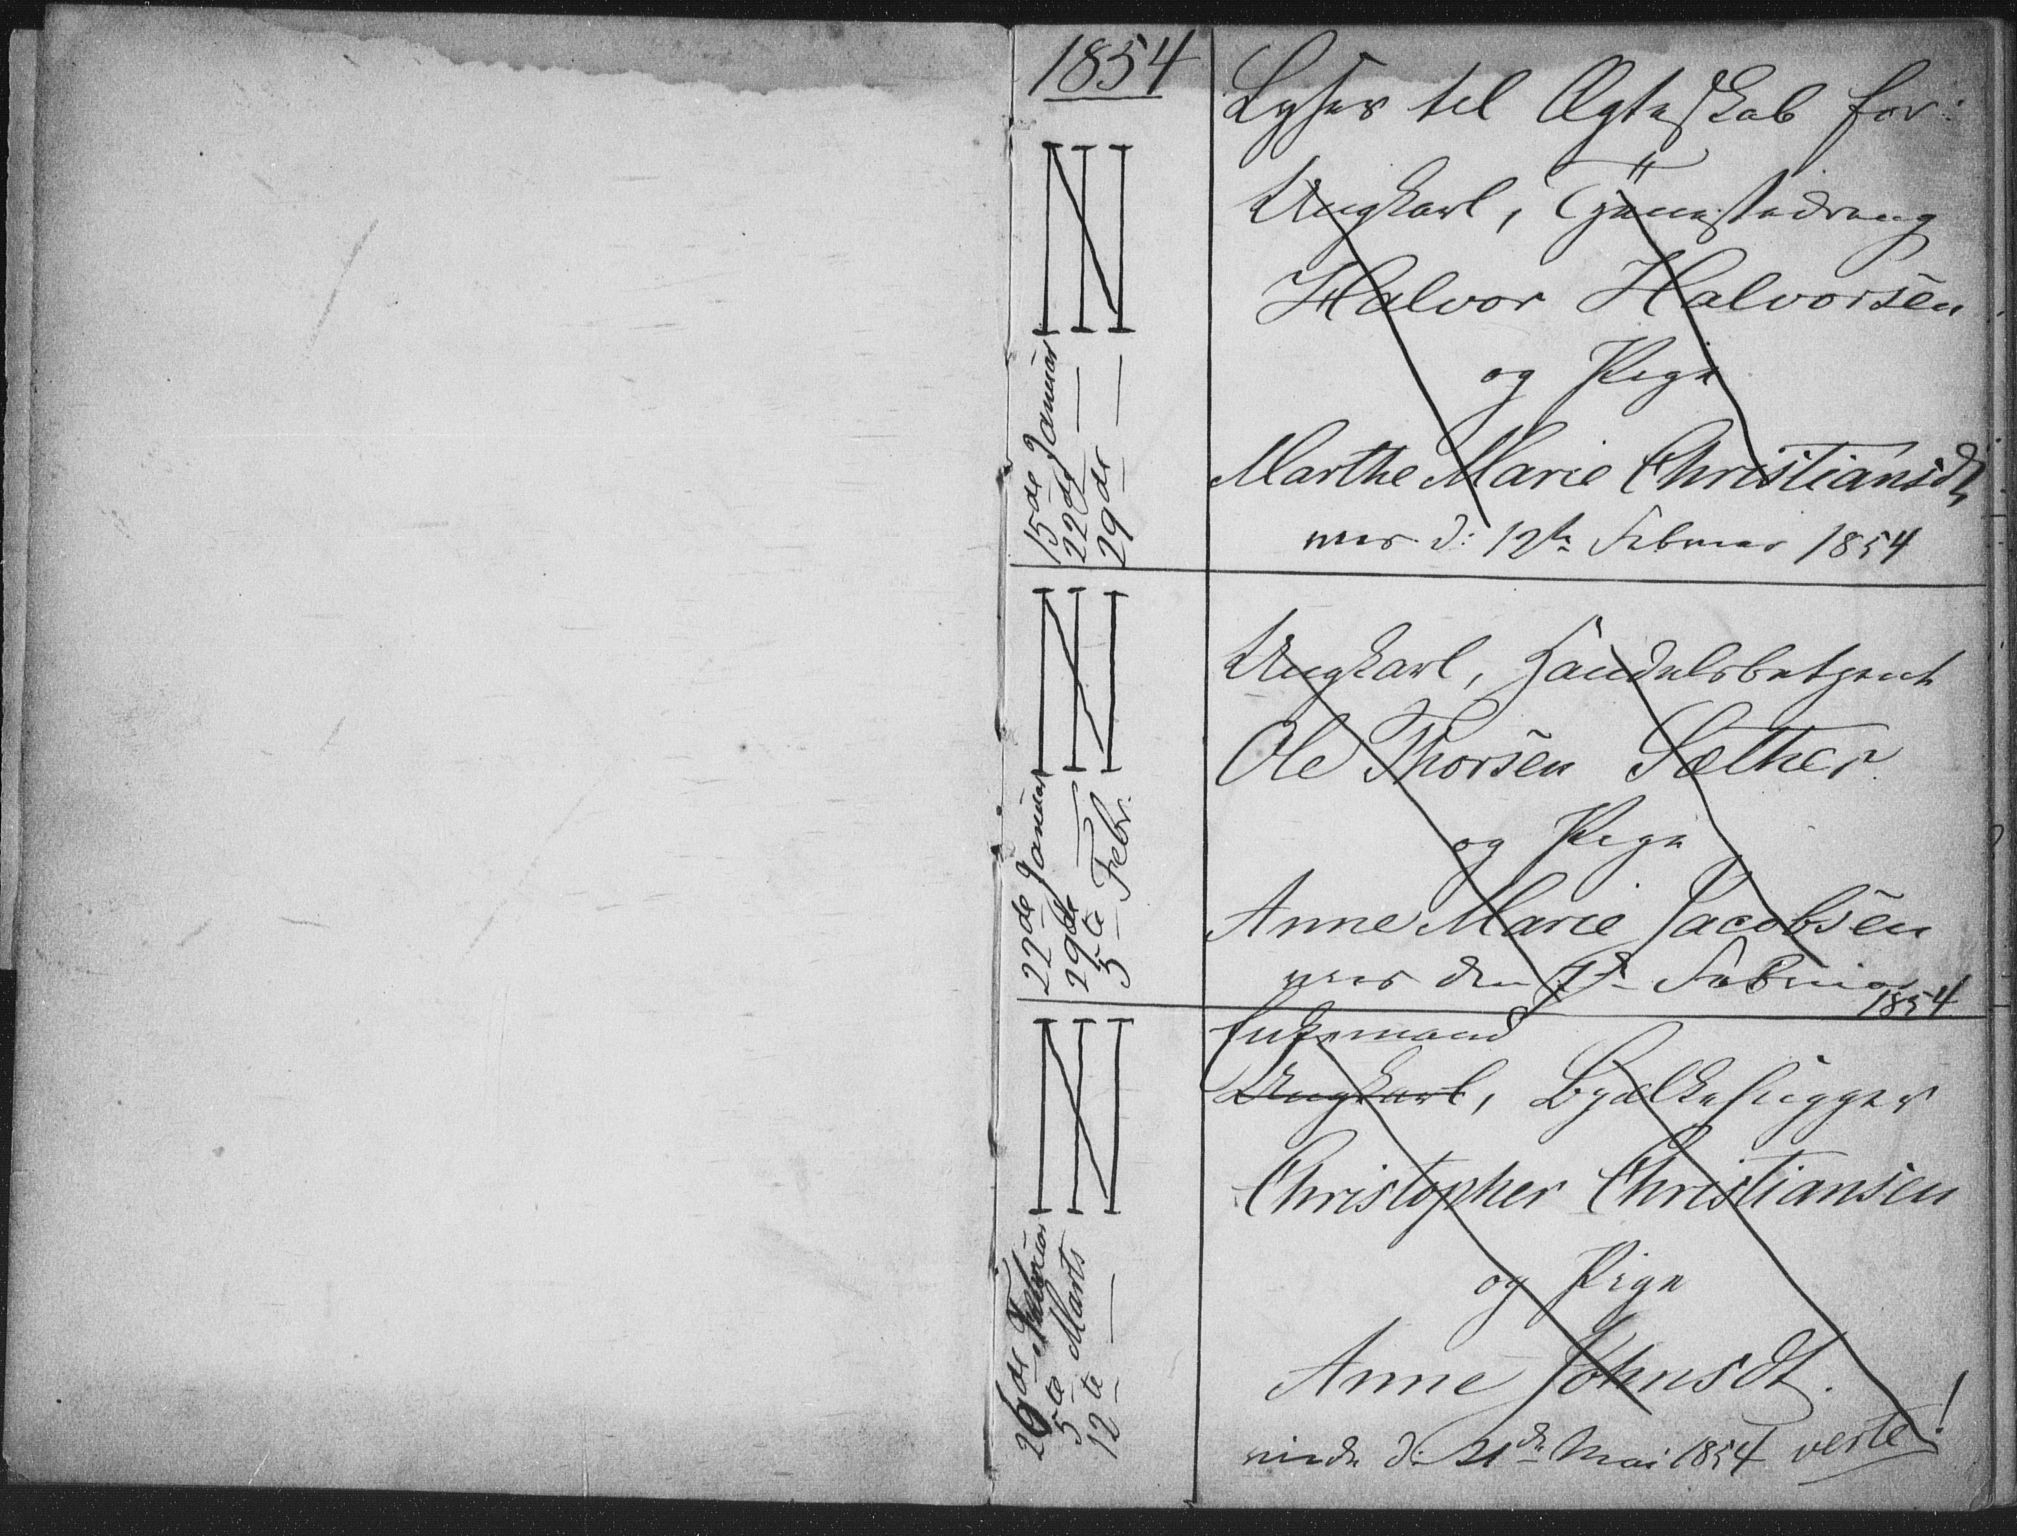 1854
Lyses til Ægteskab for:
15de Januar
22de —
29de —
Ungkarl, Tjenestedreng
Halvor Halvorsen
og Pige
Marthe Marie Christiansdt
viet d: 12te Februar 1854
22de Januar
29de —
5te Febr.
Ungkarl, Handelsbetjent
Ole Thorsen Sæther
og Pige
Anne Marie Jacobsen
viet den Februar
1854
26de Februar
5te Marts
12te —
Enkemand
Ungkarl, Bjælkeligger
Christopher Christiansen
og Pige
Anne Johnsdt.
viede d: 21de Mai 1854 verte!